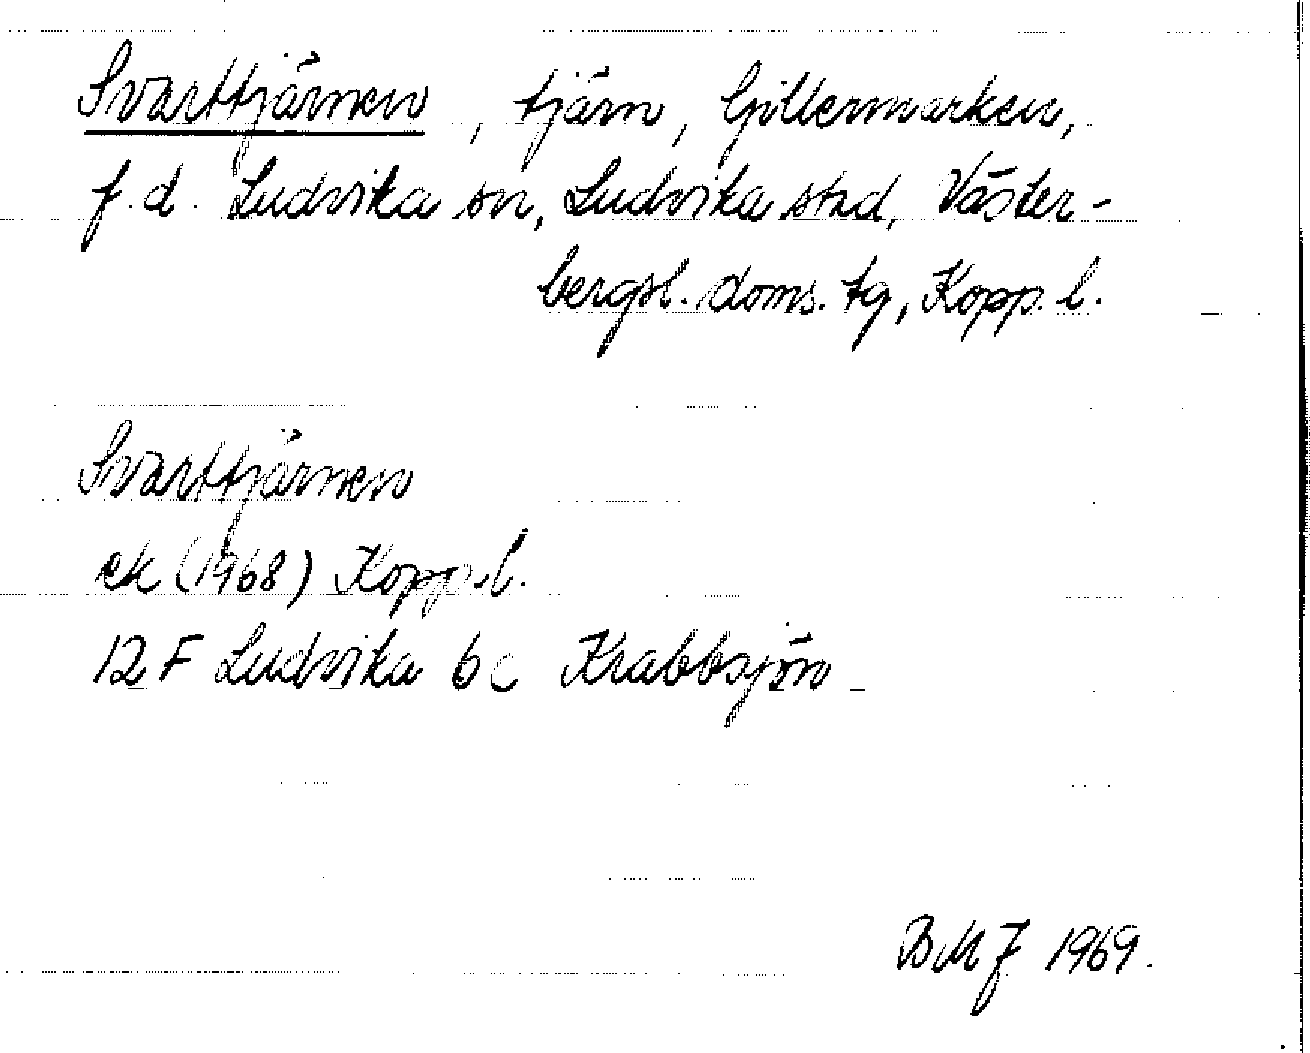 Svarttjärnen, tjärn, Gillermarken,
f.d. Ludvika sn, Ludvika stad, Väster-
bergsl. doms. tg, Kopp. l.
Svarttjärnen
ek (1968) Kopp. l.
12 F Ludvika 6 c Krabbsjön
BMJ 1969.